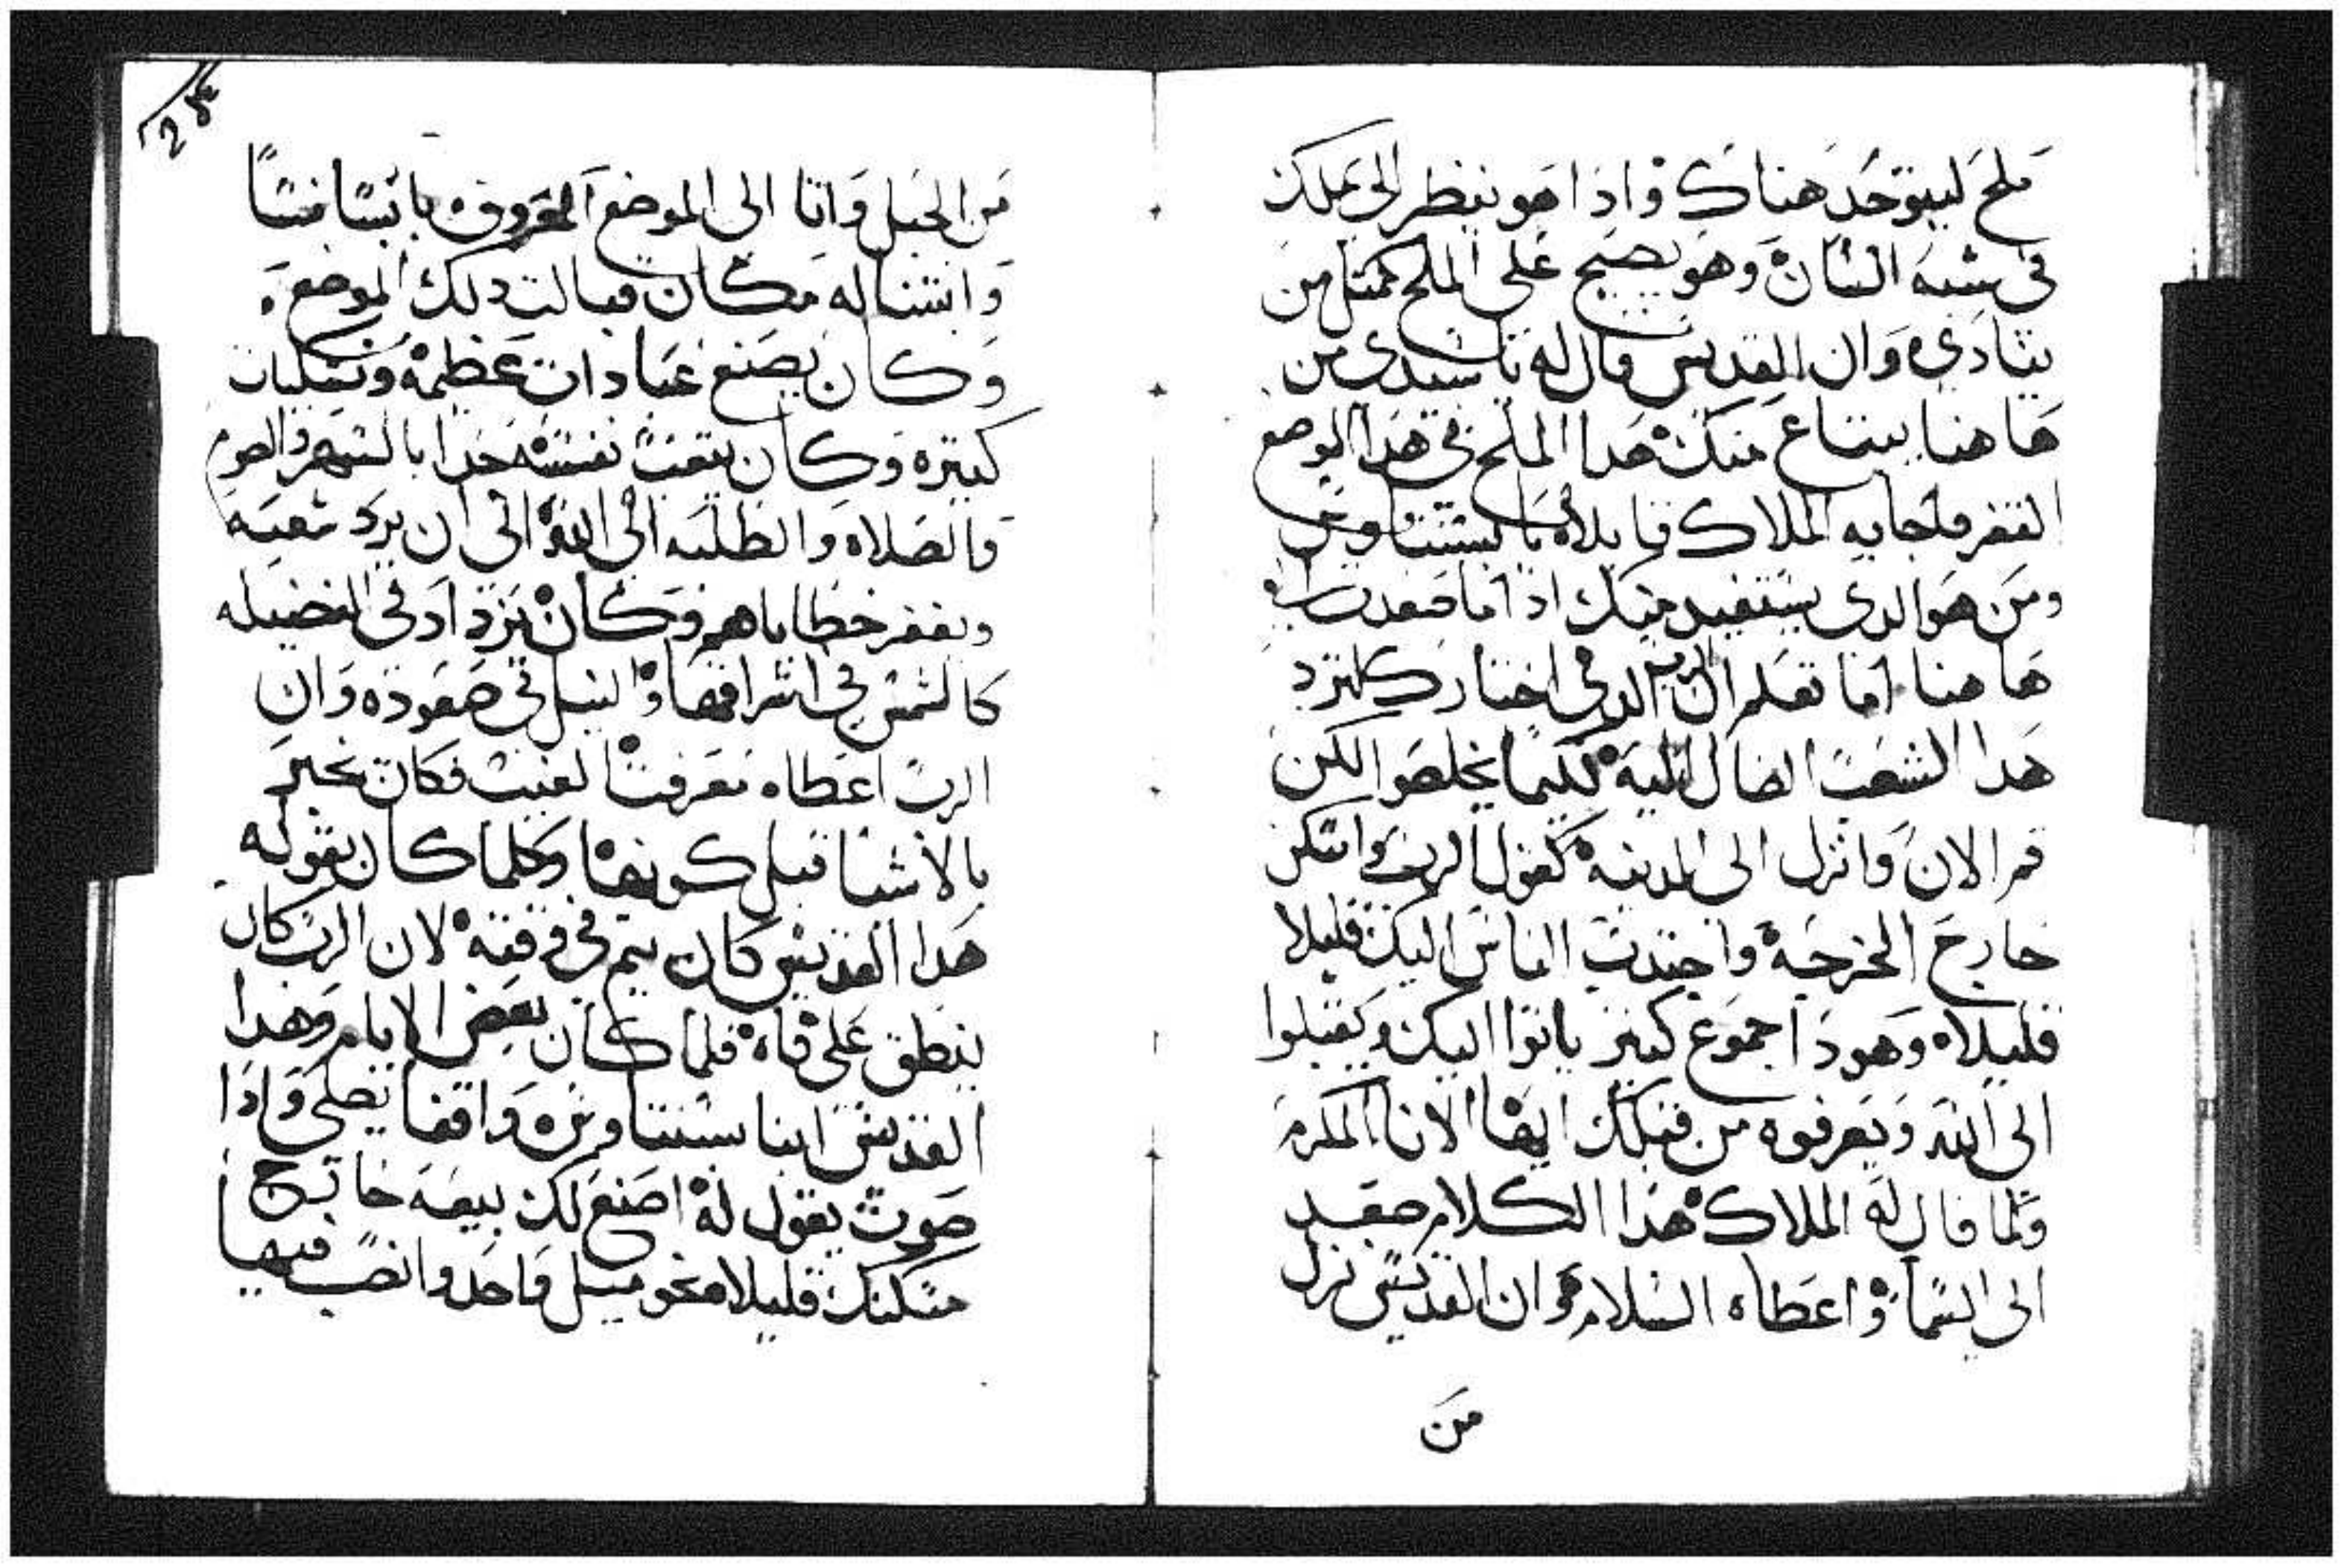 ملح ليتوحد هناك واذا هو ينظر الى ملاك
في شبه انسان وهو يصيح على الملح كمثل من
ينادي وان القديس قال له يا سيدى من
هاهنا يبتاع منك هدا الملح في هدا الموضع
القفر فاجابه الملاك قايلاً يا بسنتاوس
ومن هو الدى يستفيد منك ادا اما صعدت
هاهنا اما تعلم ان الرب الدى اختارك لترد
هدا الشعب الضال اليه لكيما يخلصوا لكن
قم الان وانزل الى المدينه كقول الرب واسكن
خارج الخرجه واجتدب الناس اليك قليلا
قليلا وهودا جموع كتير ياتوا اليك ويقبلوا
الى الله ويعرفوه من قبلك ايها الانا المكرم
ولما قال له الملاك هدا الكلام صعد
الى السما واعطاه السلام وان القديس نزل
من
من الجبل واتا الى الموضع المعروف
وابتنا له مكان قبالت دلك الموضع
وكان يصنع عبادات عظمه ونسكيات
كتيره وكان يتعب نفسه جدا بالسهر والصوم
والصلاه والطلبه الى الله الى ان يرد شعبه
ويغفر خطاياهم وكان يزداد في الفضيله
كالشمس في اشراقها والنيل في صعوده وان
الرب اعطاه معرفت الغيب فكان يخبر
بالاشيا قبل كونها وكلما كان يقوله
هدا القديس كان يتم في وقته لان الرب كان
ينطق على فاه فلما كان بعض الايام وهدا
القديس ابنا بسنتاوس واقفا يصلى واذا
صوت يقول له اصنع لك بيعه خارج
مسكنك قليلا نحو ميل واحد وانصب فيها